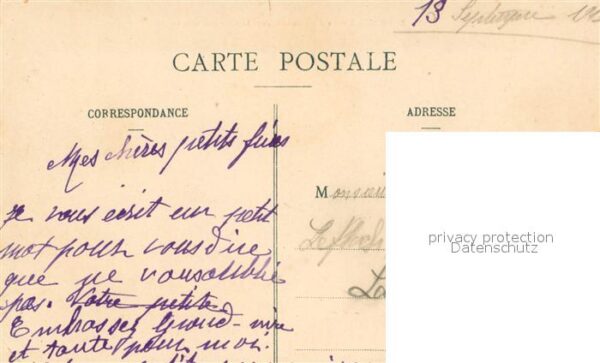 13 Septembre
CARTE POSTALE
CORRESPONDANCE
ADRESSE
Mes chères petits
Je vous écrit un petit
mot pour vous dire
que je vousoublie
pas. Votre petite
Embrasser Grand-
et tante pour moi.
Monsieur
privacy protection
Datenschutz